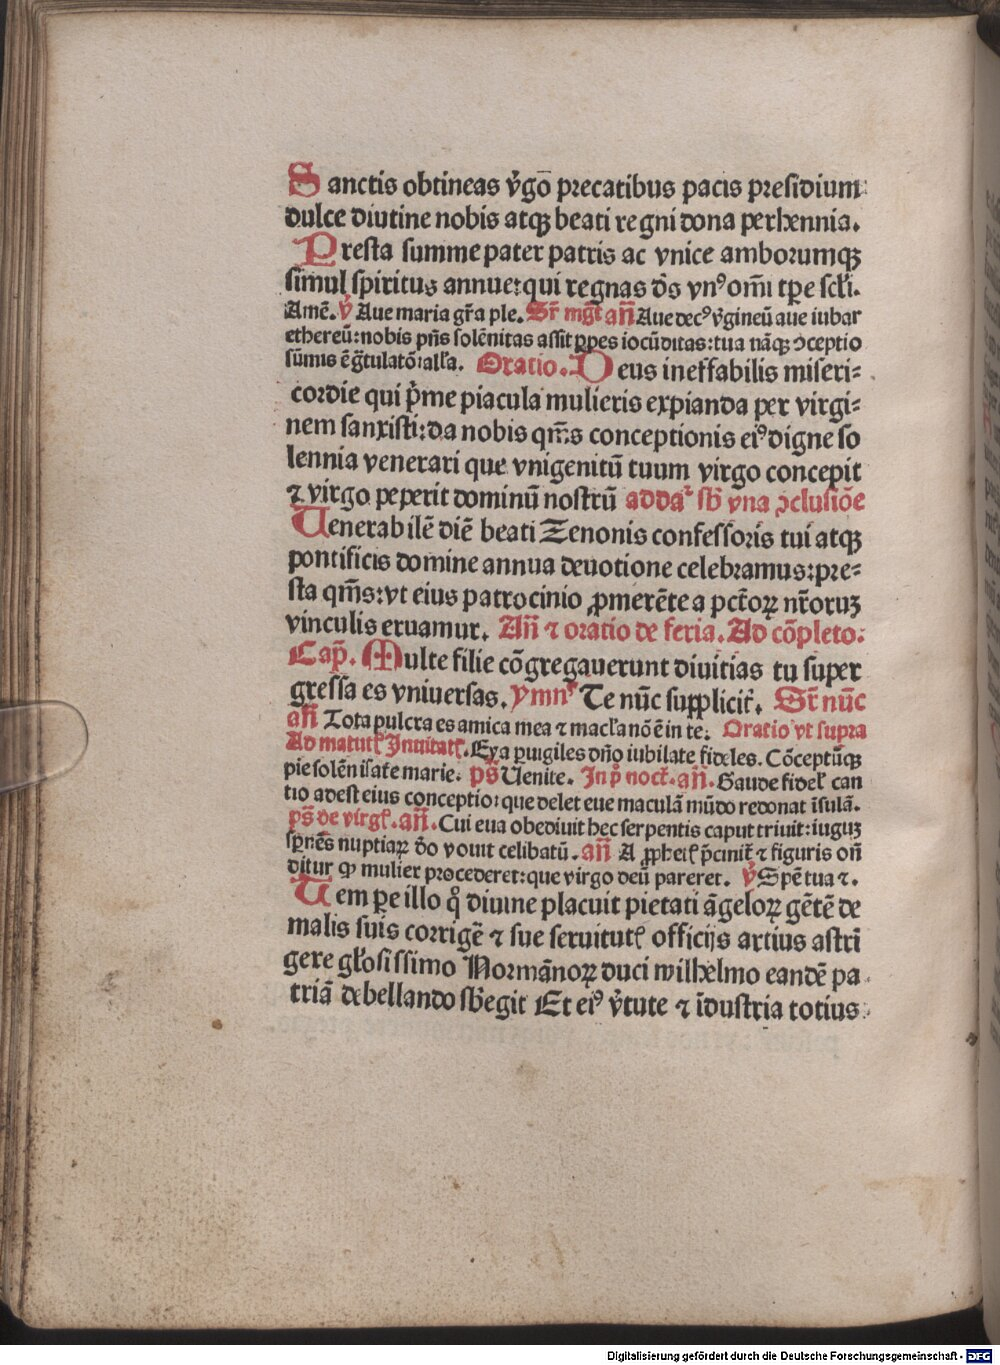 Sanctis obtineas v̾gō precatibus pacis presidium:
dulce diutine nobis atqꝫ beati regni dona perhennia.
Presta summe pater patris ac vnice amborumqꝫ
simul spiritus annue:qui regnas dō̄s vnꝰ om̄i tp̄e scłi.
Amē. v̾ Aue maria gr̄a ple. Sr̄ mg̅t an̄ Aue decꝰ v̾gineū aue iubar
ethereū:nobis pn̄s solēnitas assit ꝑpes iocūditas:tua nāqꝫ ↄceptio
sūmis ē g̅tulatō:alła. Oratio. Deus ineffabilis miseri⸗
cordie qui p̄me piacula mulieris expianda per virgi⸗
nem sanxisti:da nobis qm̄s conceptionis eiꝰ digne so
lennia venerari que vnigenitū tuum virgo concepit
⁊ virgo peperit dominū nostrū addaᷣ sb̄ vna ↄclusiōe
Uenerabilē diē beati Zenonis confessoris tui atqꝫ
pontificis domine annua deuotione celebramus:pre⸗
sta qm̄s:vt eius patrocinio ꝓmerēte a pctōꝝ nr̄oruꝫ
vinculis eruamur. An̄ ⁊ oratio de feria. Ad cōpleto.
Cap̄. Multe filie cōgregauerunt diuitias tu super
gressa es vniuersas. ymnꝰ Te nūc supplicit̄. Sr̄ nūc
an̄ Tota pulcra es amica mea ⁊ macła nō ē in te. Oratio vt supra
Ad matutꝭ Inuitatꝭ. Eya ꝑuigiles dn̄o iubilate fideles. Cōceptūqꝫ
pie solēnisate marie. ps̄ Uenite. In p̄ noct̄. an̄. Gaude fideł can
tio adest eius conceptio:que delet eue maculā mūdo redonat īsulā.
ps̄ de virgꝭ. an̄. Cui eua obediuit hec serpentis caput triuit:iuguꝫ
sp̄nēs nuptiaꝝ dō vouit celibatū. an̄ A ꝓphetꝭ p̄cinit̄ ⁊ figuris on̄
ditur ꝙ mulier procederet:que virgo deū pareret. v̾ Spē tua ⁊.
Uem ꝑe illo q̊ diuine placuit pietati āgeloꝝ gētē de
malis suis corrigē ⁊ sue seruitutꝭ officijs artius astrī
gere głosissimo Normānoꝝ duci wilhelmo eandē pa
triā debellando sb̄egit Et eiꝰ v̾tute ⁊ īdustria totius
Digitalisierung gefördert durch die Deutsche Forschungsgemeinschaft - DFG